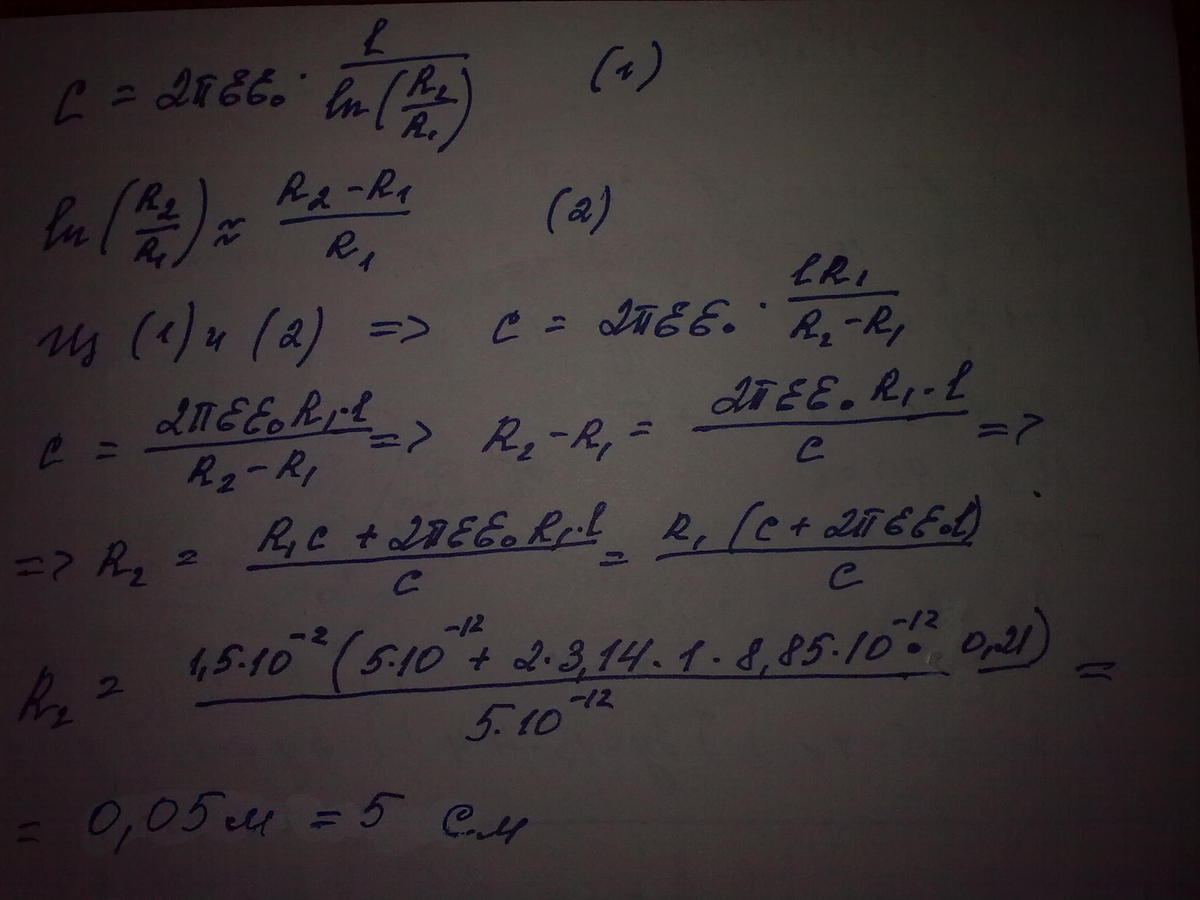 C = 2πεε₀ · l / ln(R₂/R₁) (1)
ln(R₂/R₁) ≈ (R₂ - R₁) / R₁ (2)
Из (1) и (2) => C = 2πεε₀ · lR₁ / (R₂ - R₁)
C = 2πεε₀R₁·l / (R₂ - R₁) => R₂ - R₁ = 2πεε₀R₁·l / C =>
=> R₂ = (R₁C + 2πεε₀R₁·l) / C = R₁(C + 2πεε₀l) / C
R₂ = 1,5·10⁻²(5·10⁻¹² + 2·3,14·1·8,85·10⁻¹²· 0,21) / 5·10⁻¹² =
= 0,05м = 5 см